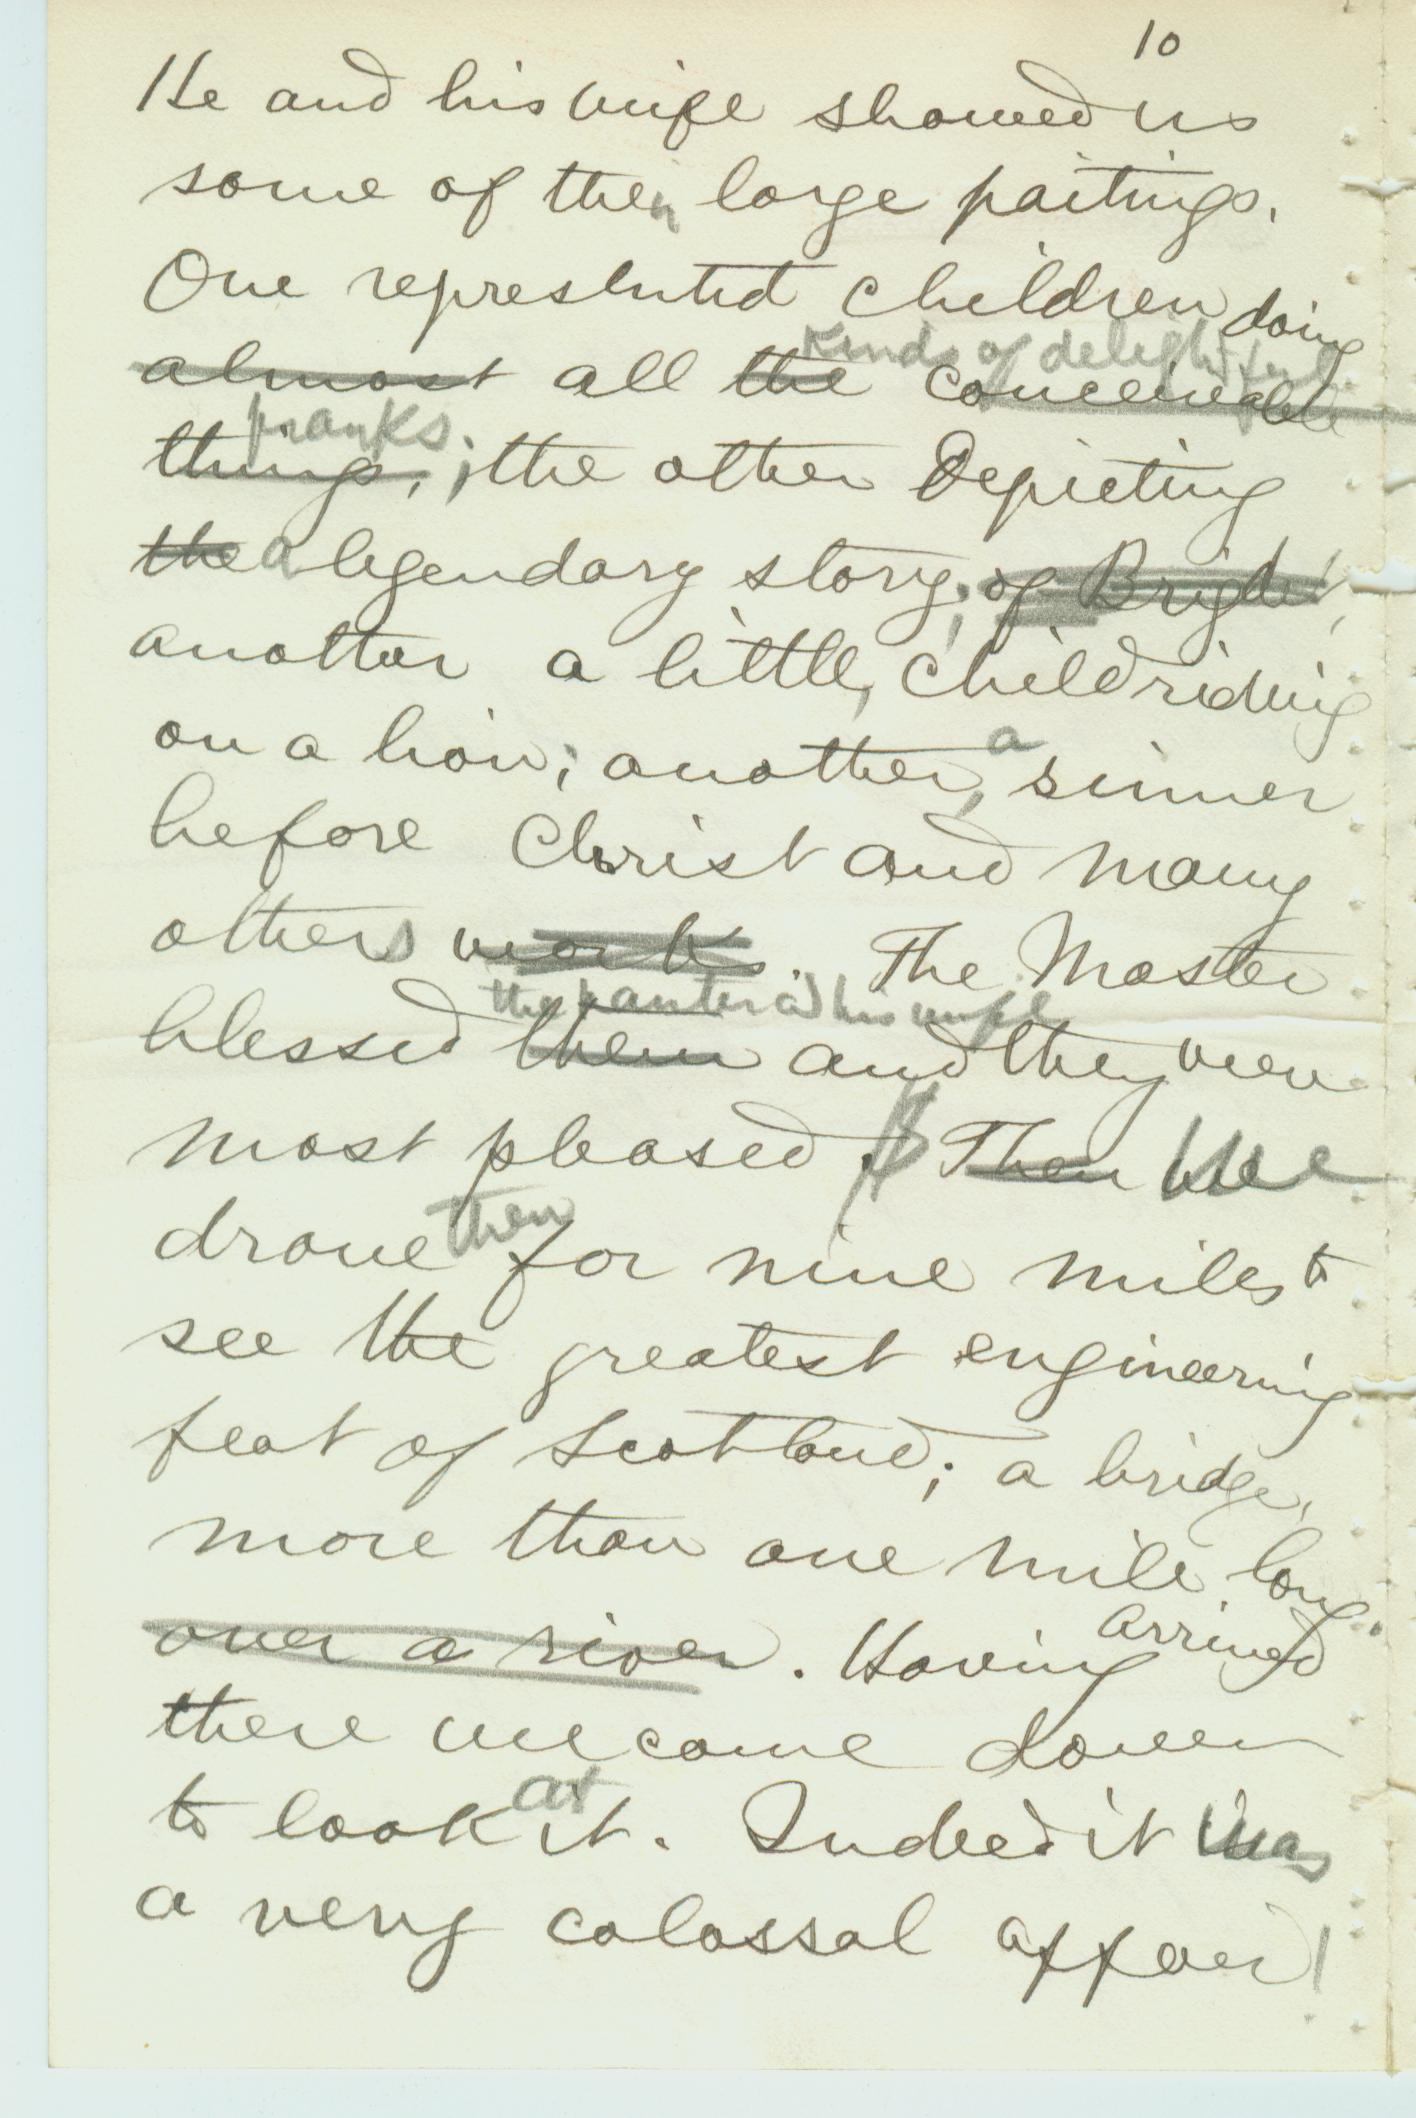 10
He and his wife showed us
some of their large paitings.
One represented children doing
kinds of delightful
almost all the conceivable
pranks.
things, ; the other Depicting
the a legendary story; of Bridet,
another a little, child riding
on a lion; another, a sinner
before Christ and many
others works. The Master
the painter and his wife
blessed them and they were
most pleased. Then We
drove then for nine miles to
see the greatest engineering
feat of Scotland; a bridge,
more than one mile long.
over a river. Having arrived
there we came down
to look at it. Indeed it was
a very colossal affair!